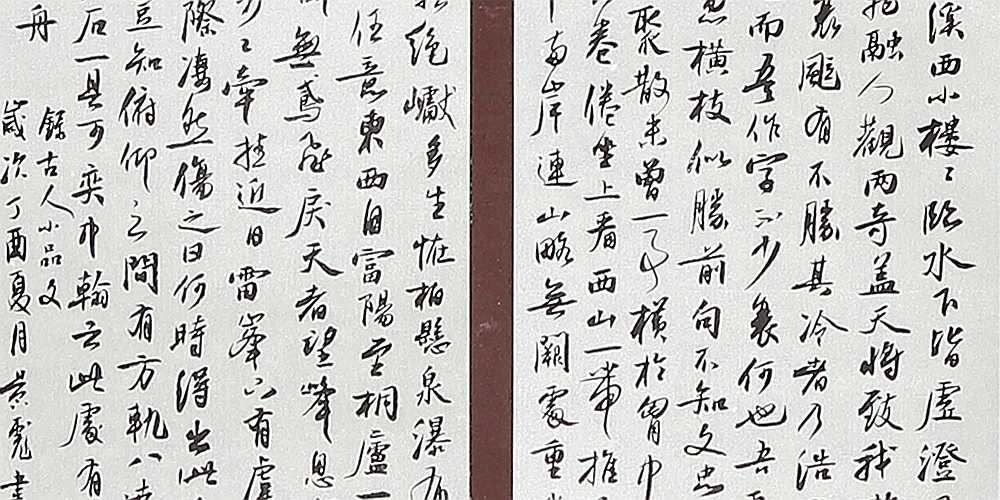 溪西小樓〻臨水下皆虛澄
融人觀兩奇蓋天將致我
裏颸有不勝其冷者乃浩
而吾作字不少衰何也吾
橫枝似勝前句不知文忠
聚散未曾一了橫於胷中
卷倦坐上看西山一帶推
南岸連山略無闕處重
絕巘多生怪柏懸泉瀑布
任意東西自富陽至桐廬一
無鳶飛戾天者望峰息
〻牽挂近日雷峯下有虛
際淒然傷之日何時得出此
豈知俯仰之間有方軌八達
石一具可奕中輪云此處有
舟
錄古人小品文
歲次丁酉夏月